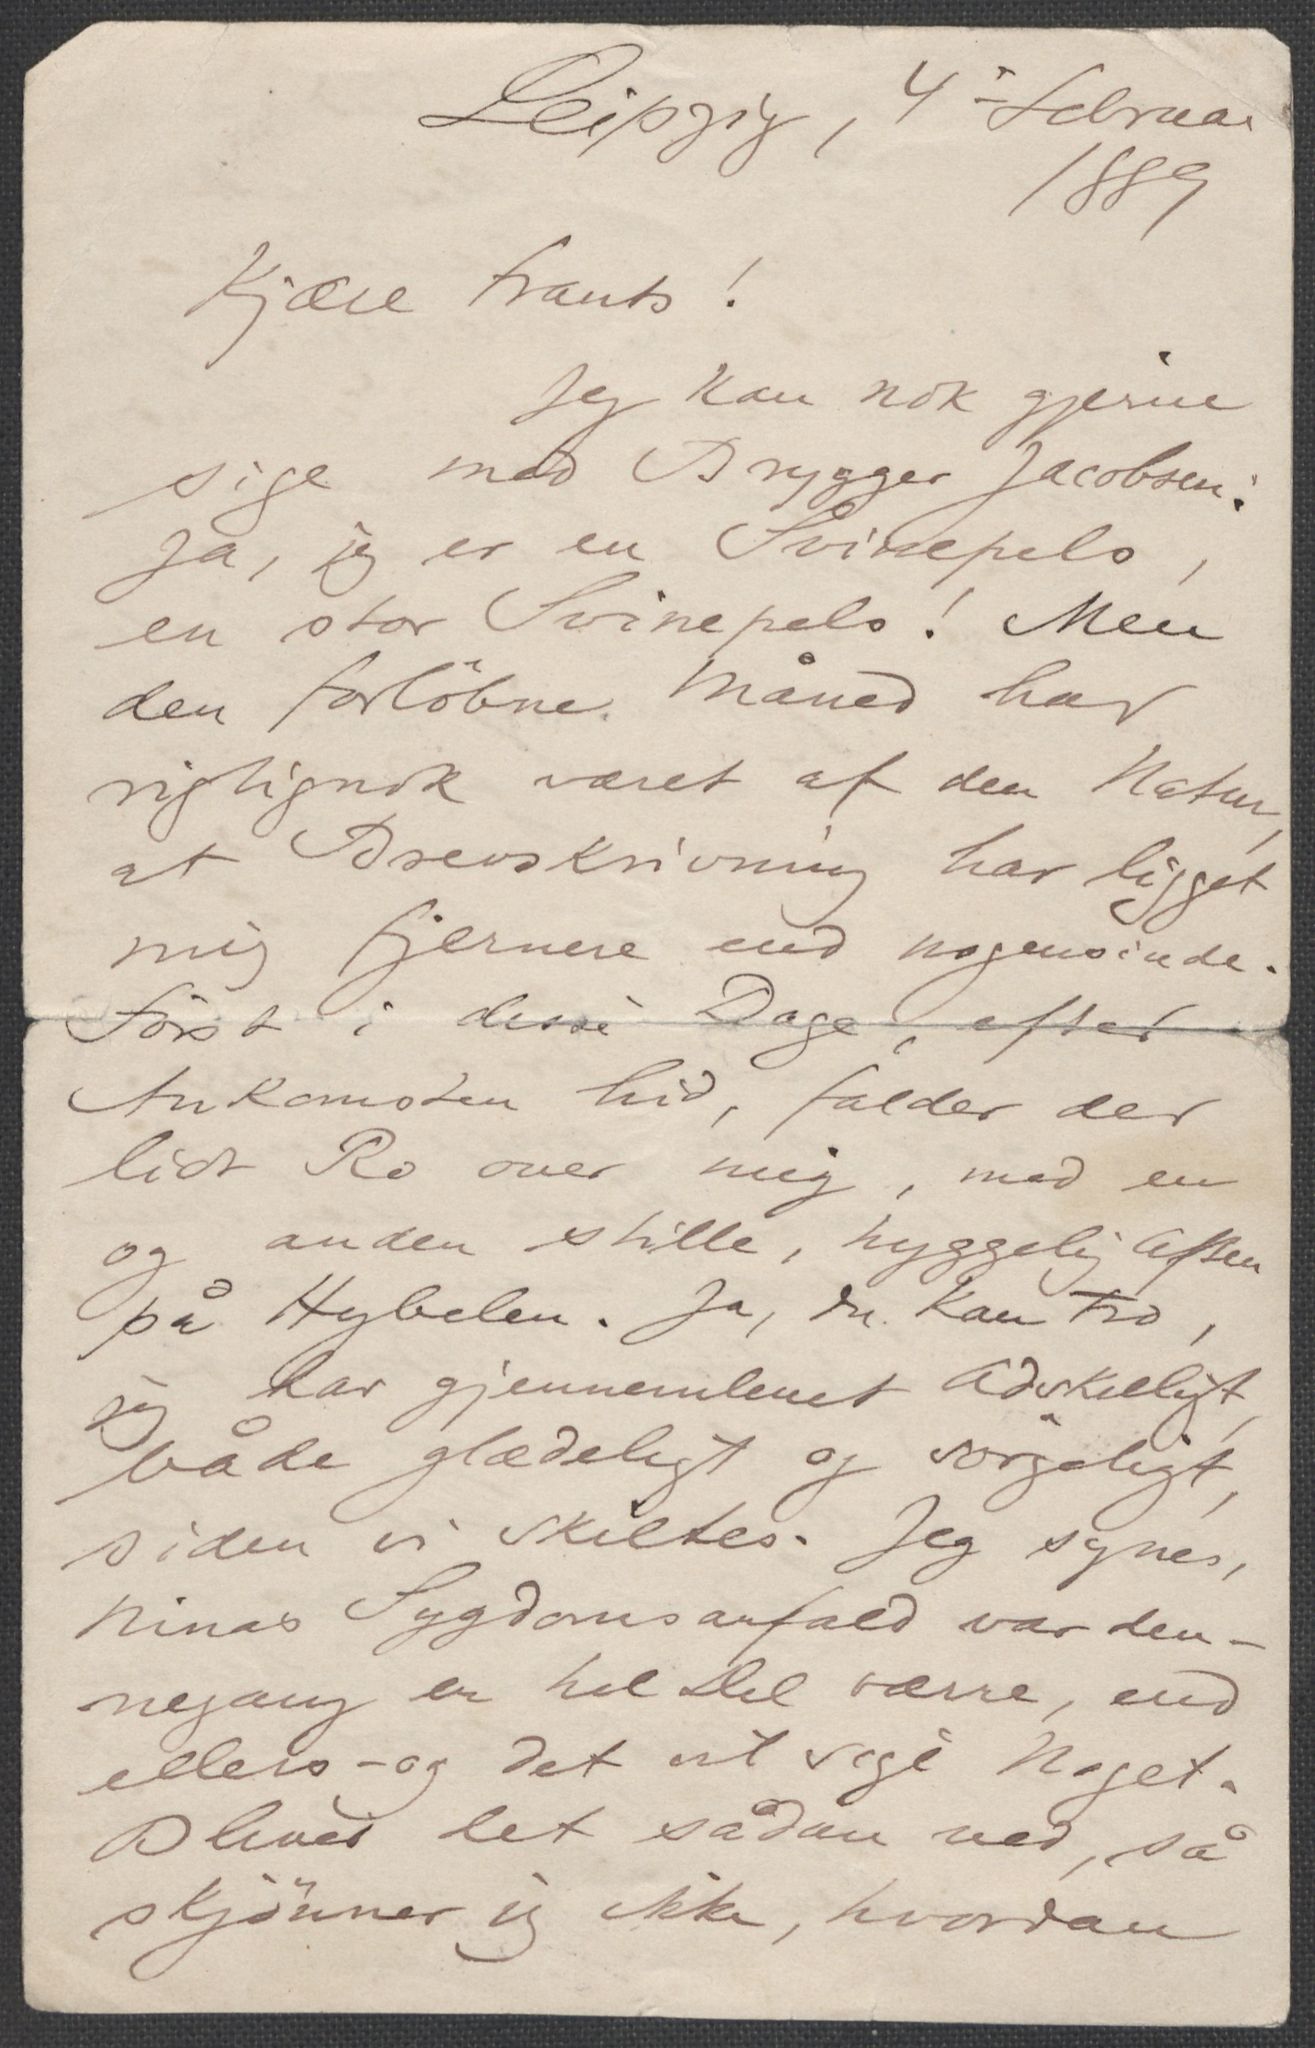 Leipzig, 4 februar
1889
Kjære Frants!
Jeg kan nok gjerne
sige med Brygger Jacobsen:
Ja, jeg er en Svinepels,
en stor Svinepels! Men
den forløbne Måned har
rigtignok været af den Natur,
at Brevskrivning har ligget
mig fjernere end nogensinde.
Först i disse Dage, efter
Ankomsten hid, falder der
lidt Ro over mig, med en
og anden stille, hyggelig Aften
på Hybelen. Ja, du kan tro,
jeg har gjennemlevet Adskilligt,
både glædeligt og sörgeligt,
siden vi skiltes. Jeg synes,
Ninas Sygdomsanfald var den-
negang en hel Del værre, end
ellers - og det vil sige Noget.
Bliver det sådan ved, så
skjönner jeg ikke, hvordan